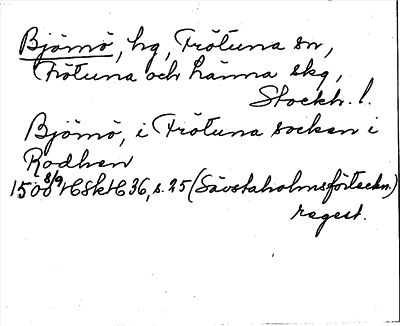 Björnö, hg, Frötuna sn,
Frötuna och Länna skg,
Stockh. l.
Björnö, i Frötuna socken i
Rodhen
1500 8/9 HSH 36, s. 25 (Sävstaholmsförteckn.)
regest.